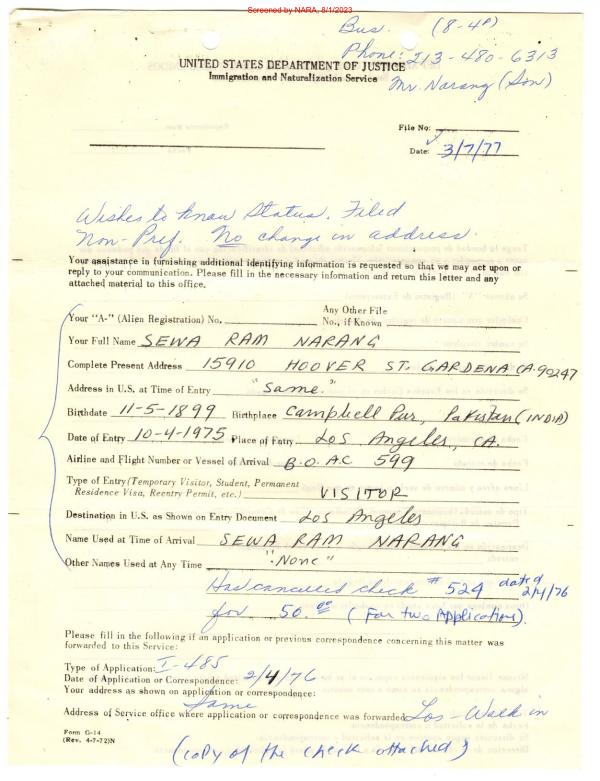 Screened by NARA, 8/1/2023
Bus. (8-4P)
Phone: 213-480-6313
Mr. Narang (Son)
UNITED STATES DEPARTMENT OF JUSTICE
Immigration and Naturalization Service
File No:
Date: 3/7/77
Wishes to know Status. Filed
Non-Pref. No change in address.
Your assistance in furnishing additional identifying information is requested so that we may act upon or
reply to your communication. Please fill in the necessary information and return this letter and any
attached material to this office.
Your "A-" (Alien Registration) No. Any Other File No., if Known
Your Full Name SEWA RAM NARANG
Complete Present Address 15910 HOOVER ST. GARDENA CA. 90247
Address in U.S. at Time of Entry "Same."
Birthdate 11-5-1899 Birthplace Campbell Pur, Pakistan (INDIA)
Date of Entry 10-4-1975 Place of Entry Los Angeles, CA.
Airline and Flight Number or Vessel of Arrival B.O.AC 599
Type of Entry (Temporary Visitor, Student, Permanent
Residence Visa, Reentry Permit, etc.) VISITOR
Destination in U.S. as Shown on Entry Document Los Angeles
Name Used at Time of Arrival SEWA RAM NARANG
Other Names Used at Any Time "None"
Has cancelled check # 524 dated 2/4/76
for 50.00 (For two Applications)
Please fill in the following if an application or previous correspondence concerning this matter was
forwarded to this Service:
Type of Application: I-485
Date of Application or Correspondence: 2/4/76
Your address as shown on application or correspondence:
Same
Address of Service office where application or correspondence was forwarded Los - Walk in
Form G-14
(Rev. 4-7-72)N
(copy of the check attached)